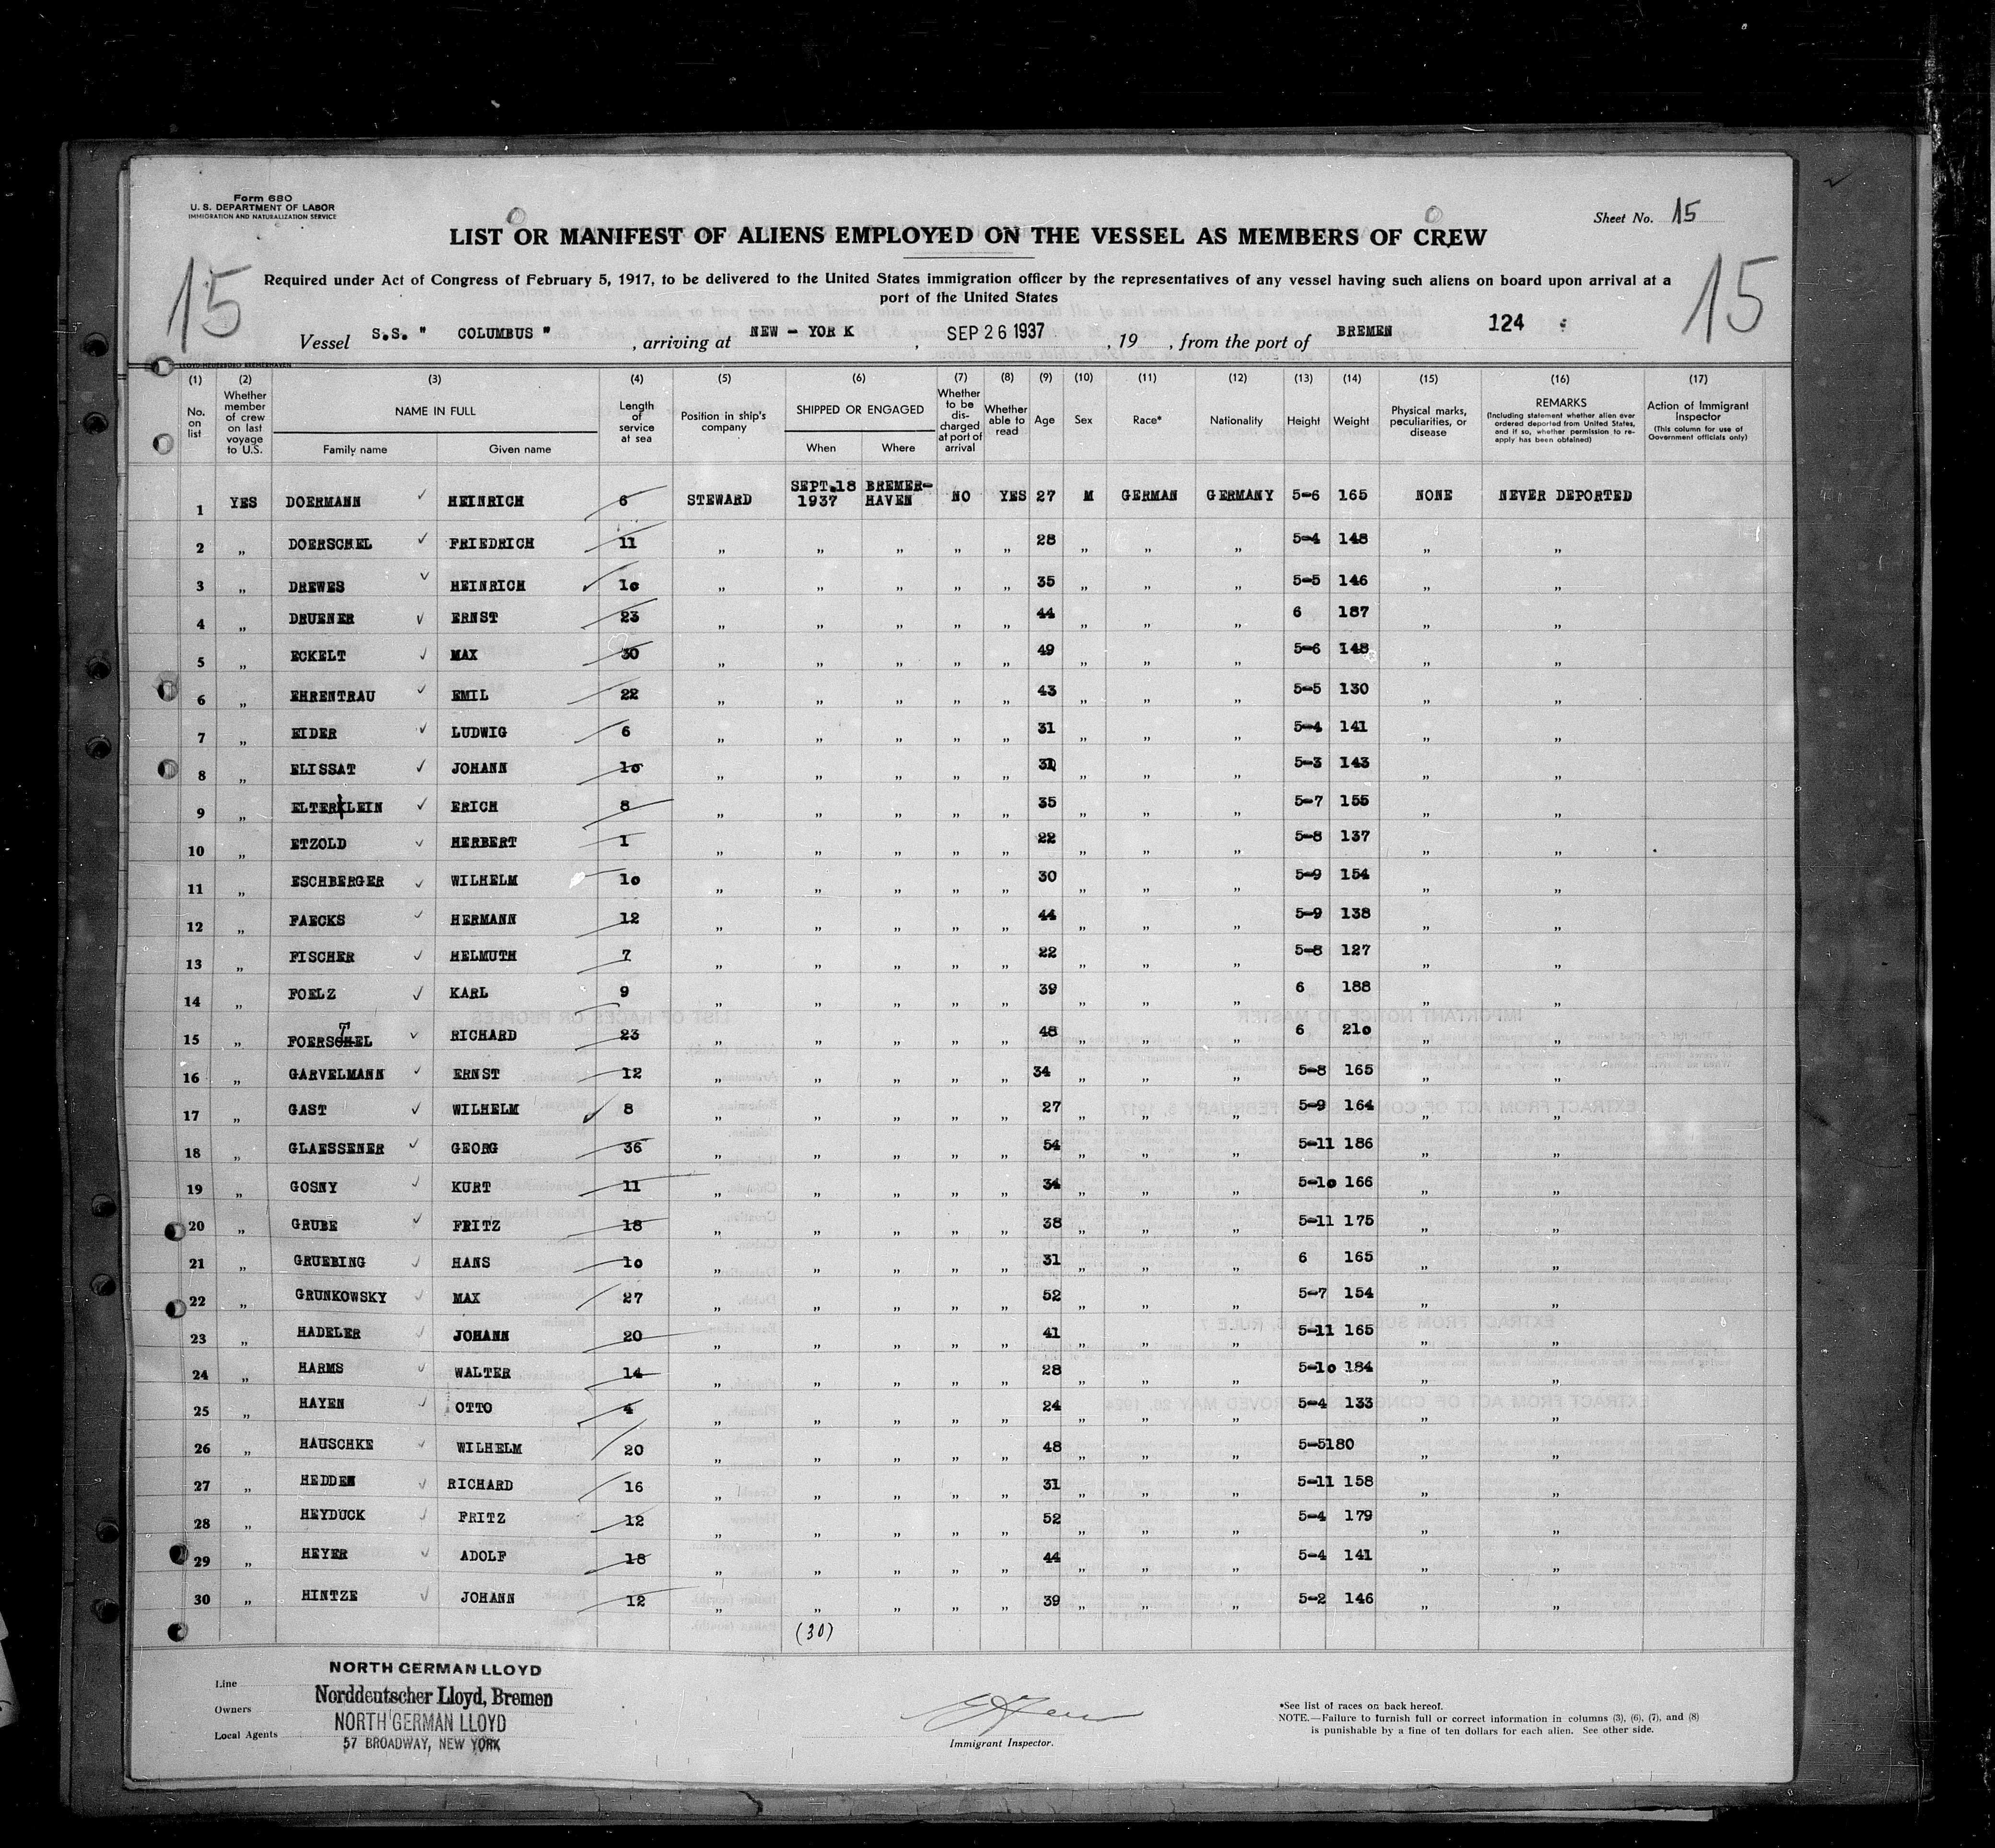 Form 680
U. S. DEPARTMENT OF LABOR
IMMIGRATION AND NATURALIZATION SERVICE
Sheet No. 15
LIST OR MANIFEST OF ALIENS EMPLOYED ON THE VESSEL AS MEMBERS OF CREW
15 15
Required under Act of Congress of February 5, 1917, to be delivered to the United States immigration officer by the representatives of any vessel having such aliens on board upon arrival at a
port of the United States
Vessel S.S. " COLUMBUS " , arriving at NEW - YORK , SEP 26 1937 , 19 , from the port of BREMEN 124
(1) (2) (3) (4) (5) (6) (7) (8) (9) (10) (11) (12) (13) (14) (15) (16) (17)
No. on list
Whether member of crew on last voyage to U.S.
NAME IN FULL
Family name Given name
Length of service at sea
Position in ship's company
SHIPPED OR ENGAGED
When Where
Whether to be discharged at port of arrival
Whether able to read
Age
Sex
Race*
Nationality
Height
Weight
Physical marks, peculiarities, or disease
REMARKS
(Including statement whether alien ever ordered deported from United States, and if so, whether permission to reapply has been obtained)
Action of Immigrant Inspector
(This column for use of Government officials only)
1 YES DOERMANN ✓ HEINRICH 6 STEWARD SEPT.18 1937 BREMER-HAVEN NO YES 27 M GERMAN GERMANY 5-6 165 NONE NEVER DEPORTED
2 „ DOERSCHEL ✓ FRIEDRICH 11 „ „ „ „ „ 28 „ „ „ 5-4 148 „ „
3 „ DREWES ✓ HEINRICH ✓ 10 „ „ „ „ „ 35 „ „ „ 5-5 146 „ „
4 „ DRUENER ✓ ERNST 23 „ „ „ „ „ 44 „ „ „ 6 187 „ „
5 „ ECKELT ✓ MAX 30 „ „ „ „ „ 49 „ „ „ 5-6 148 „ „
6 „ EHRENTRAU ✓ EMIL 22 „ „ „ „ „ 43 „ „ „ 5-5 130 „ „
7 „ EIDER ✓ LUDWIG 6 „ „ „ „ „ 31 „ „ „ 5-4 141 „ „
8 „ ELISSAT ✓ JOHANN 10 „ „ „ „ „ 31 „ „ „ 5-3 143 „ „
9 „ ELTERKLEIN ✓ ERICH 8 „ „ „ „ „ 35 „ „ „ 5-7 155 „ „
10 „ ETZOLD ✓ HERBERT 1 „ „ „ „ „ 22 „ „ „ 5-8 137 „ „
11 „ ESCHBERGER ✓ WILHELM 10 „ „ „ „ „ 30 „ „ „ 5-9 154 „ „
12 „ FAECKS ✓ HERMANN 12 „ „ „ „ „ 44 „ „ „ 5-9 138 „ „
13 „ FISCHER ✓ HELMUTH 7 „ „ „ „ „ 22 „ „ „ 5-8 127 „ „
14 „ FOELZ ✓ KARL 9 „ „ „ „ „ 39 „ „ „ 6 188 „ „
15 „ FOERSTEL ✓ RICHARD 23 „ „ „ „ „ 48 „ „ „ 6 210 „ „
16 „ GARVELMANN ✓ ERNST 12 „ „ „ „ „ 34 „ „ „ 5-8 165 „ „
17 „ GAST ✓ WILHELM ✓ 8 „ „ „ „ „ 27 „ „ „ 5-9 164 „ „
18 „ GLAESSENER ✓ GEORG 36 „ „ „ „ „ 54 „ „ „ 5-11 186 „ „
19 „ GOSNY ✓ KURT 11 „ „ „ „ „ 34 „ „ „ 5-10 166 „ „
20 „ GRUBE ✓ FRITZ 18 „ „ „ „ „ 38 „ „ „ 5-11 175 „ „
21 „ GRUEBING ✓ HANS 10 „ „ „ „ „ 31 „ „ „ 6 165 „ „
22 „ GRUNKOWSKY ✓ MAX 27 „ „ „ „ „ 52 „ „ „ 5-7 154 „ „
23 „ HADELER ✓ JOHANN 20 „ „ „ „ „ 41 „ „ „ 5-11 165 „ „
24 „ HARMS ✓ WALTER 14 „ „ „ „ „ 28 „ „ „ 5-10 184 „ „
25 „ HAYEN ✓ OTTO 4 „ „ „ „ „ 24 „ „ „ 5-4 133 „ „
26 „ HAUSCHKE ✓ WILHELM 20 „ „ „ „ „ 48 „ „ „ 5-5 180 „ „
27 „ HEDDEN ✓ RICHARD 16 „ „ „ „ „ 31 „ „ „ 5-11 158 „ „
28 „ HEYDUCK ✓ FRITZ 12 „ „ „ „ „ 52 „ „ „ 5-4 179 „ „
29 „ HEYER ✓ ADOLF 18 „ „ „ „ „ 44 „ „ „ 5-4 141 „ „
30 „ HINTZE ✓ JOHANN 12 „ „ „ „ „ 39 „ „ „ 5-2 146 „ „
(30)
Line NORTH GERMAN LLOYD
Owners Norddeutscher Lloyd, Bremen
Local Agents NORTH GERMAN LLOYD
57 BROADWAY, NEW YORK
Immigrant Inspector.
*See list of races on back hereof.
NOTE.—Failure to furnish full or correct information in columns (3), (6), (7), and (8)
is punishable by a fine of ten dollars for each alien. See other side.